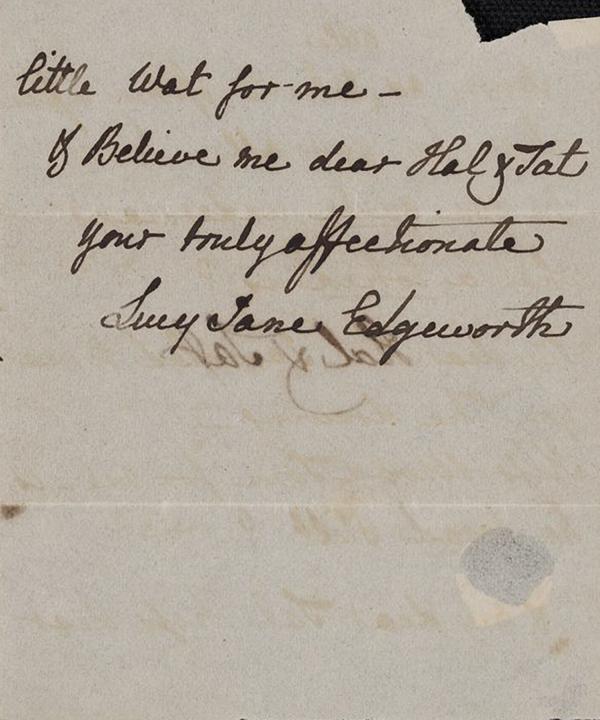 little Wat for me -
& Believe me dear Hal & Tat
your truly affectionate
Lucy Jane Edgeworth
Hal & Tat